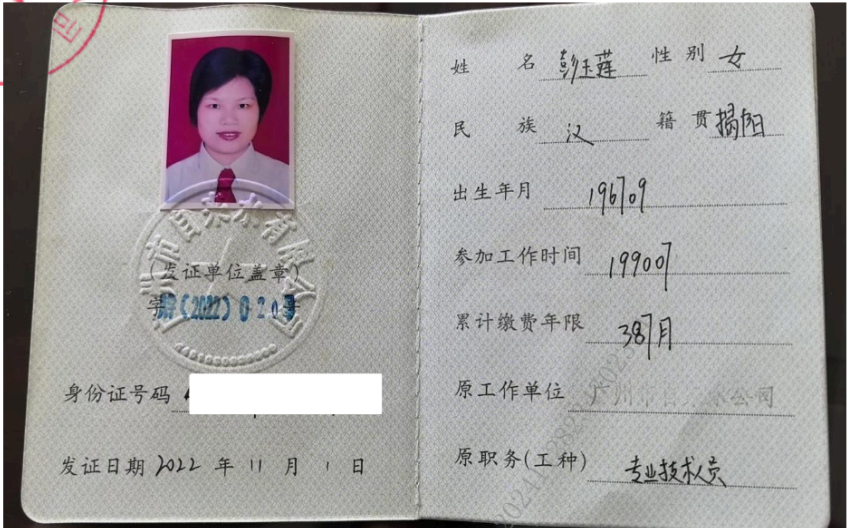 (发证单位盖章)
(2022)020号
身份证号码
发证日期 2022 年 11 月 1 日
姓 名 彭玉莲 性别 女
民 族 汉 籍贯 揭阳
出生年月 196709
参加工作时间 199007
累计缴费年限 387月
原工作单位 广州市自来水公司
原职务(工种) 专业技术人员